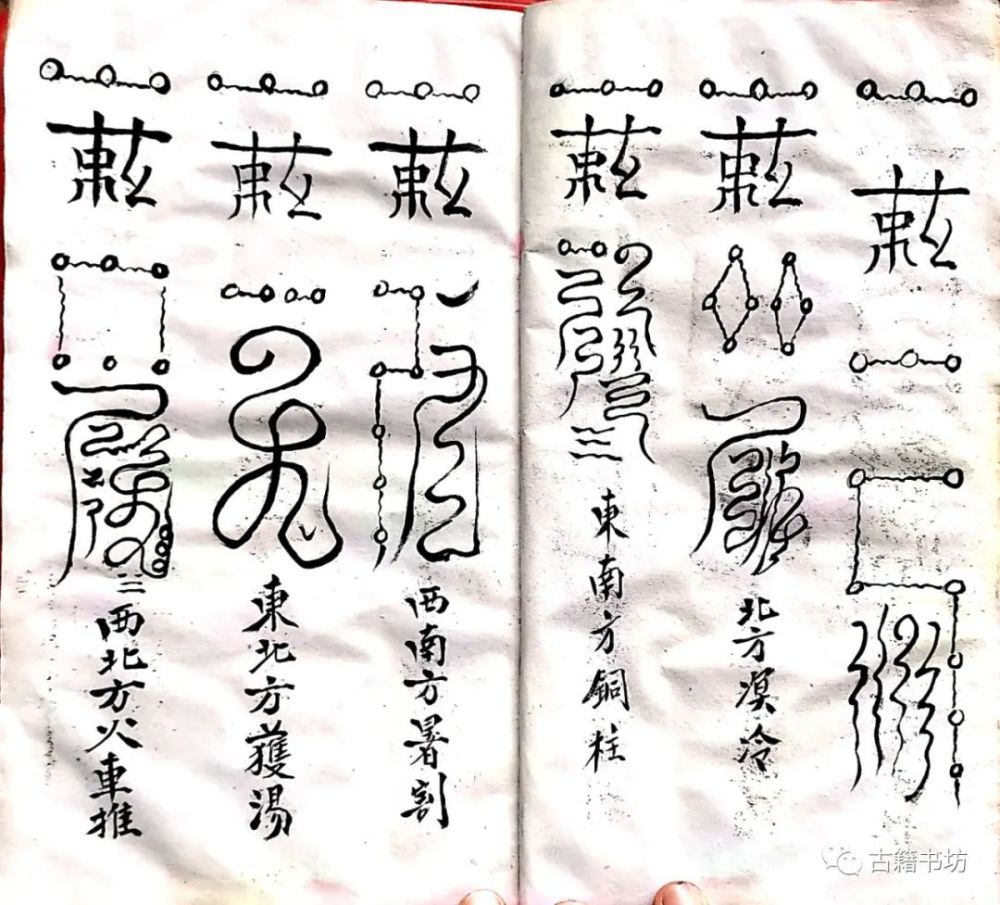 敕
敕
北方漠冷
敕
東南方銅柱
敕
西南方暑割
敕
東北方獲湯
敕
西北方火車推
古籍书坊